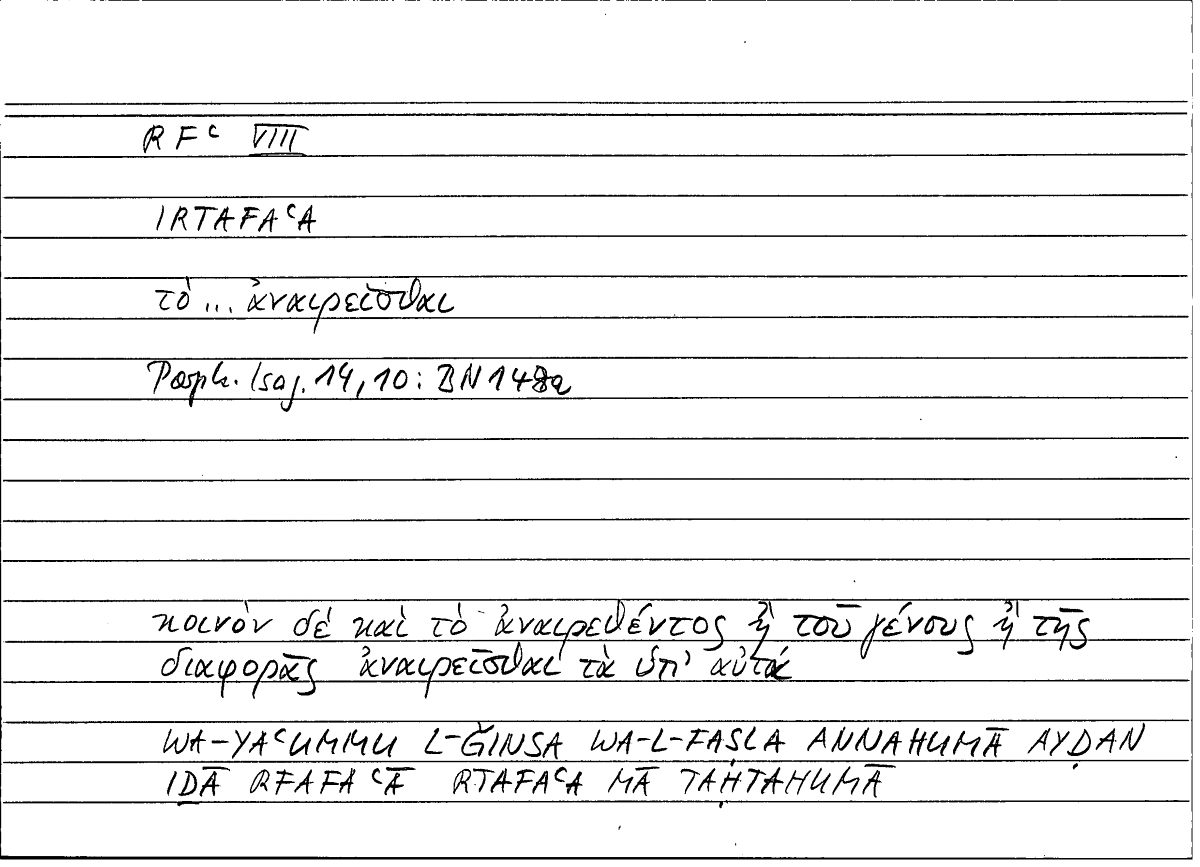 RFᶜ VIII
IRTAFAᶜA
τὸ ... ἀναιρεῖσθαι
Porph. Isag. 14, 10: BN 148a
κοινὸν δὲ καὶ τὸ ἀναιρεθέντος ἢ τοῦ γένους ἢ τῆς
διαφορᾶς ἀναιρεῖσθαι τὰ ὑπ' αὐτά
WA-YAᶜUMMU L-ǦINSA WA-L-FAṢLA ANNAHUMĀ AYḌAN
IḎĀ RFAFAᶜĀ RTAFAᶜA MĀ TAḤTAHUMĀ